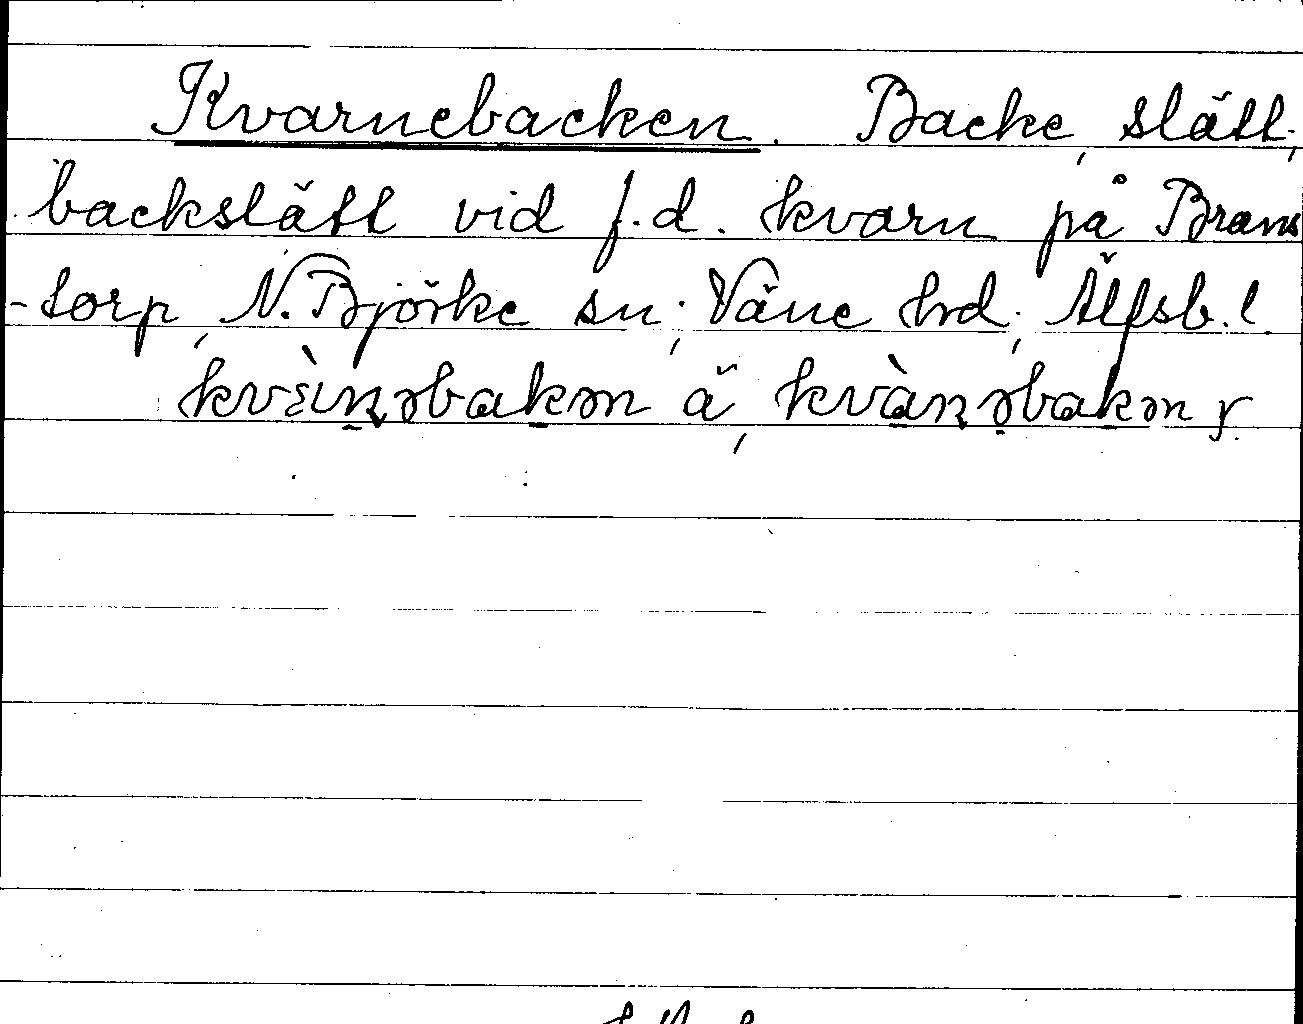 Kvarnebacken. Backe, slätt,
backslätt vid f.d. kvarn på Brans
-torp, N. Björke sn, Väne hd, Älfsb. l.
kvὲɩṇəbakən ä, kvàṇəbakən y.